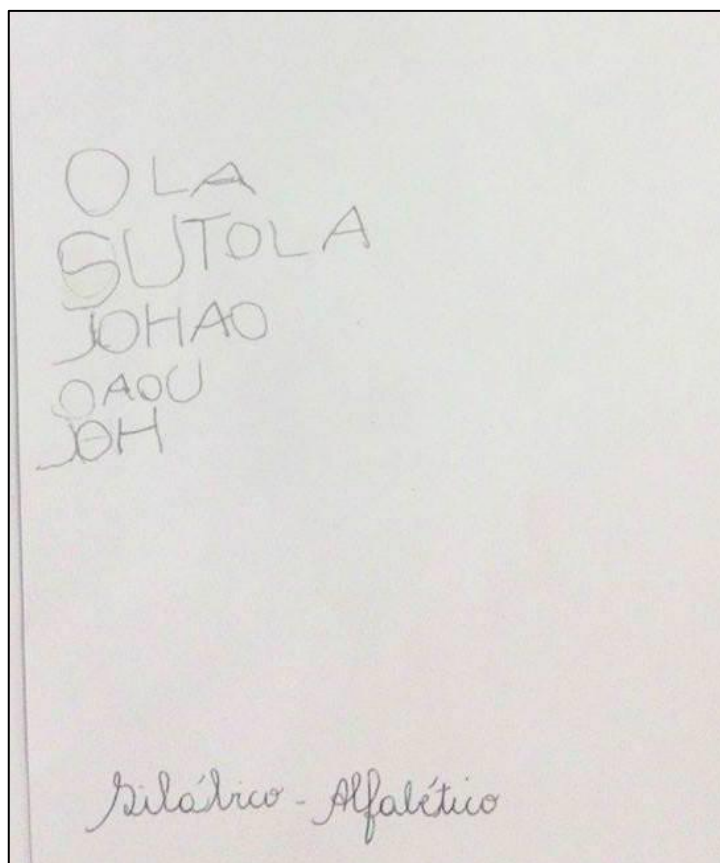 OLA
SUTOLA
JOHAO
OAOU
JOH
Silábico - Alfabético